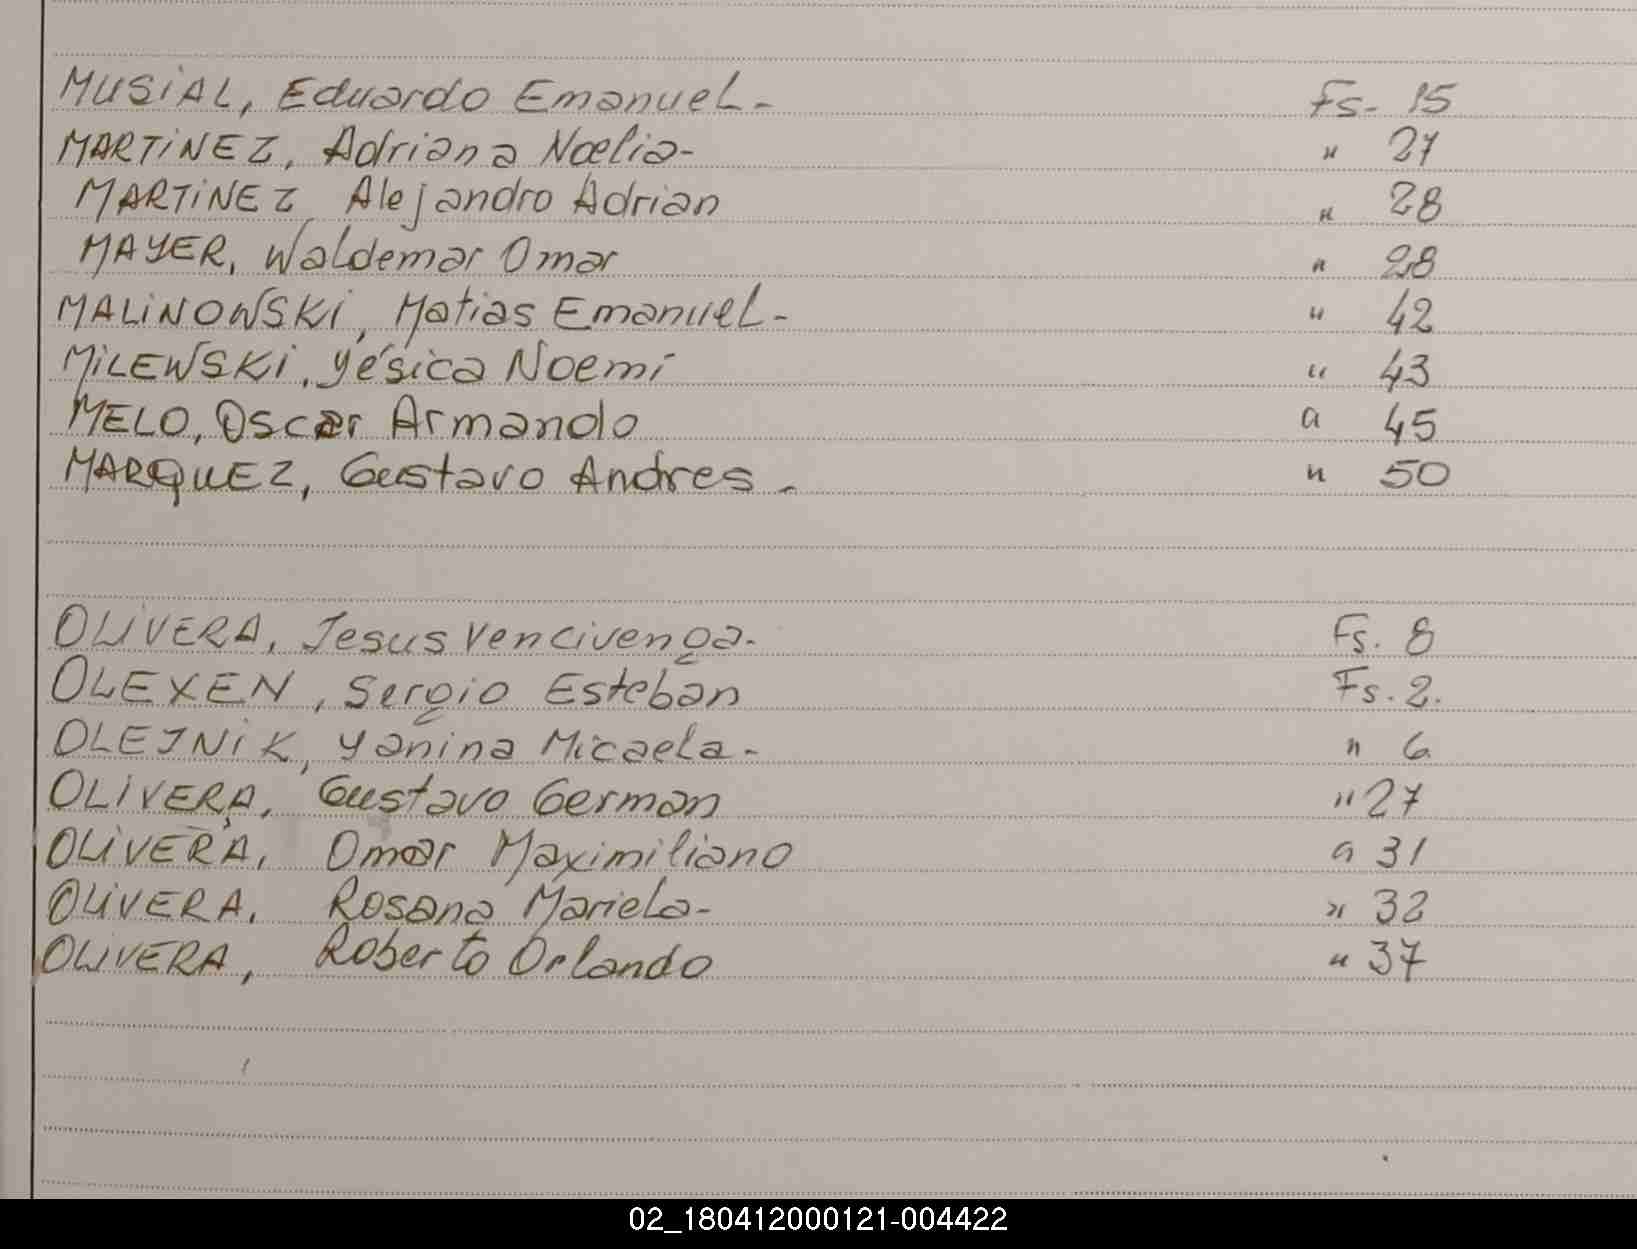 MUSiAL, Eduardo Emanuel- Fs- 15
MARTiNEZ, Adriana Noelia- " 27
MARTiNEZ Alejandro Adrian " 28
MAYER, Waldemar Omar " 28
MALiNOWSKi, Matias Emanuel- " 42
MiLEWSKi, Yésica Noemí " 43
MELO, Oscar Armando " 45
MARQUEZ, Gustavo Andres- " 50
OLIVERA, Jesus Vencivenga- Fs. 8
OLEXEN, Sergio Esteban Fs. 2.
OLEJNiK, Yanina Micaela- " 6
OLiVERA, Gustavo German " 27
OLiVERA, Omar Maximiliano " 31
OLiVERA, Rosana Mariela- " 32
OLIVERA, Roberto Orlando " 37
02_180412000121-004422